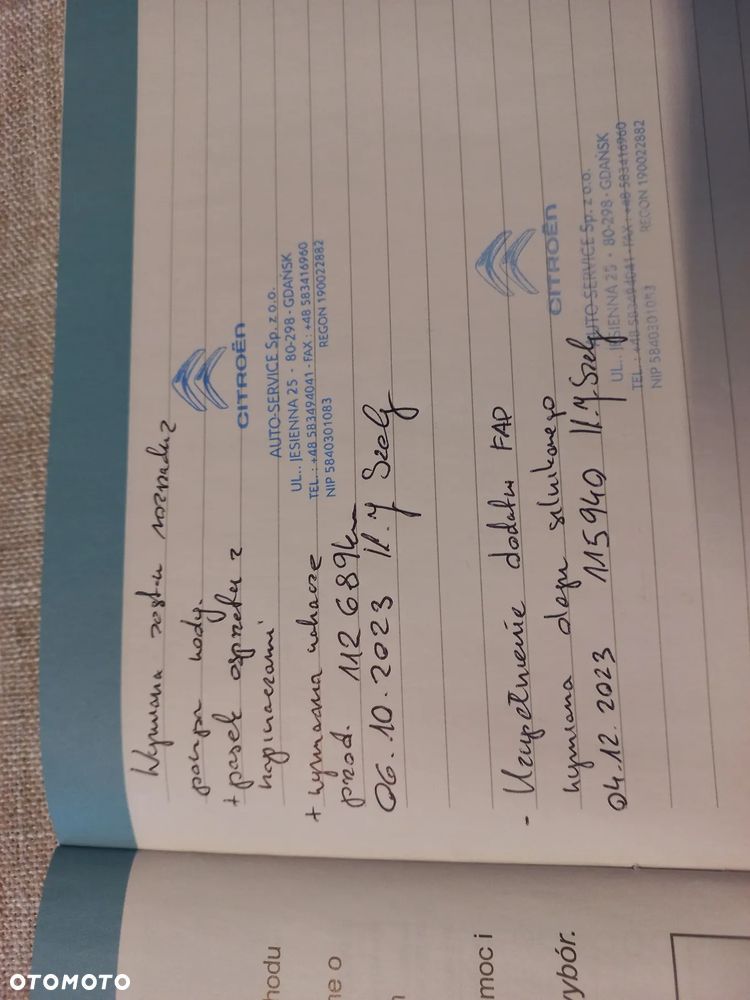 Wymiana zestaw rozrządu z
pompą wody.
+ pasek osprzętu z
napinaczami
+ wymiana wahacze
przód. 112 689 km
06.10.2023
CITROËN
AUTO-SERVICE Sp. z o.o.
UL.. JESIENNA 25 - 80-298 - GDAŃSK
TEL.: +48 583494041 - FAX : +48 583416960
NIP 5840301083 REGON 190022882
- Uzupełnienie dodatku FAP
wymiana oleju silnikowego
04.12.2023 115940
CITROËN
AUTO-SERVICE Sp. z o.o.
UL.. JESIENNA 25 - 80-298 - GDAŃSK
TEL.: +48 583494041 - FAX : +48 583416960
NIP 5840301083 REGON 190022882
hodu
ne o
moc i
ybór.
OTOMOTO